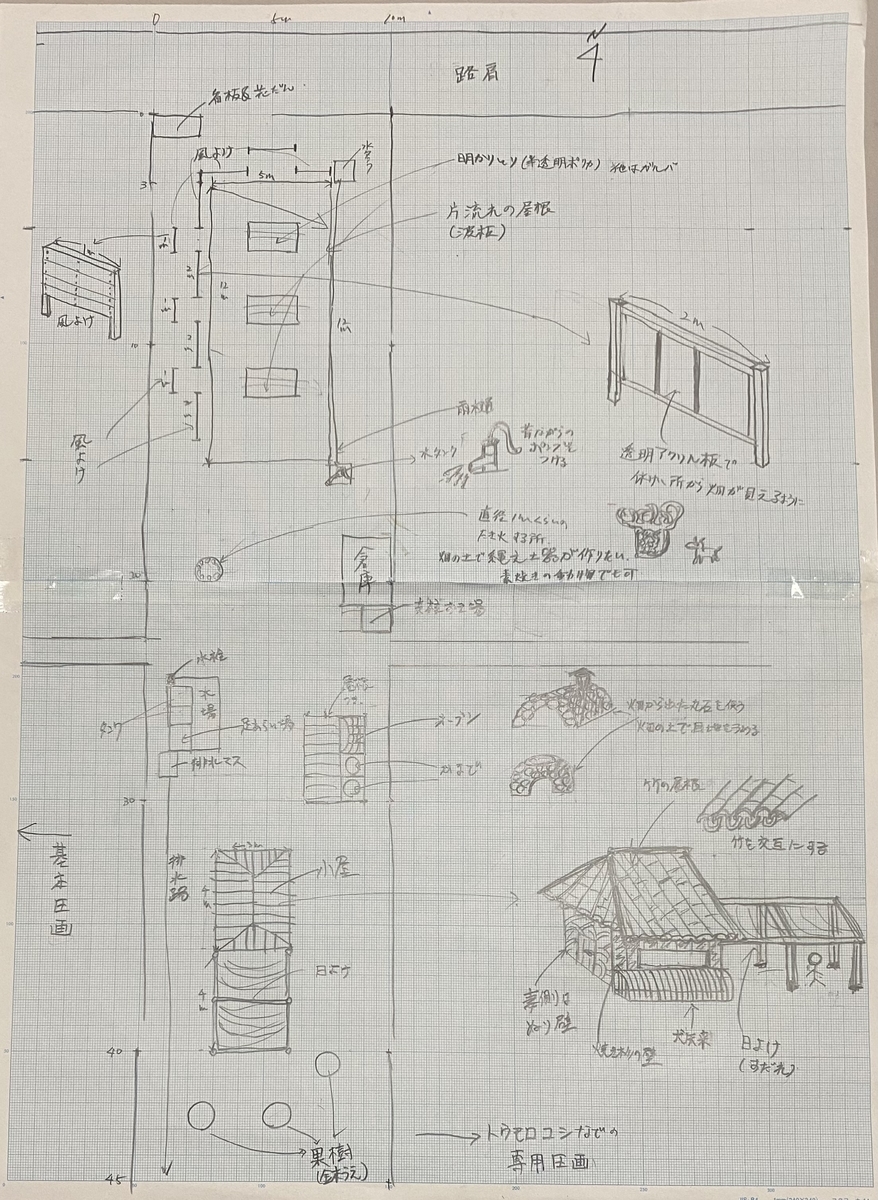 0
5m
10m
N
路肩
看板&花だん
0
風よけ
5m
水タンク
明かりとり(半透明ポリカ)
片流れの屋根
(波板)
3
1m
1m
2m
12m
12m
風よけ
1m
2m
2m
10
1m
2m
風よけ
雨水樋
水タンク
昔ながらの
ポンプを
つける
透明アクリル板で
休けい所から畑が見えるように
直径1mくらいの
たき火する所
畑の土で縄文土器が作りたい
素焼きの動物でも可
倉庫
20
支柱置き場
水栓
水場
タンク
足あらい場
排水マス
屋根
オーブン
かまど
畑から出た丸石を使う
畑の土で目地をうめる
30
竹の屋根
竹を交互にする
基本区画
排水路
小屋
3m
4m
日よけ
4m
妻側は
ぬり壁
焼き杉の壁
犬矢来
日よけ
(すだれ)
40
果樹
(鉢うえ)
トウモロコシなどの
専用区画
45